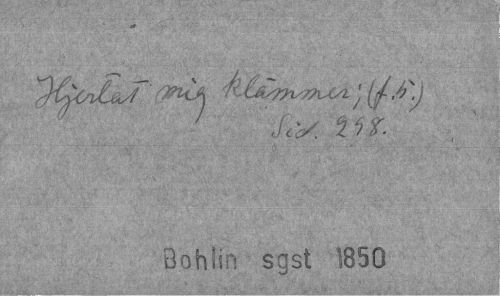 Hjertat mig klämmer; (f.5.)
Sid. 298.
Bohlin sgst 1850